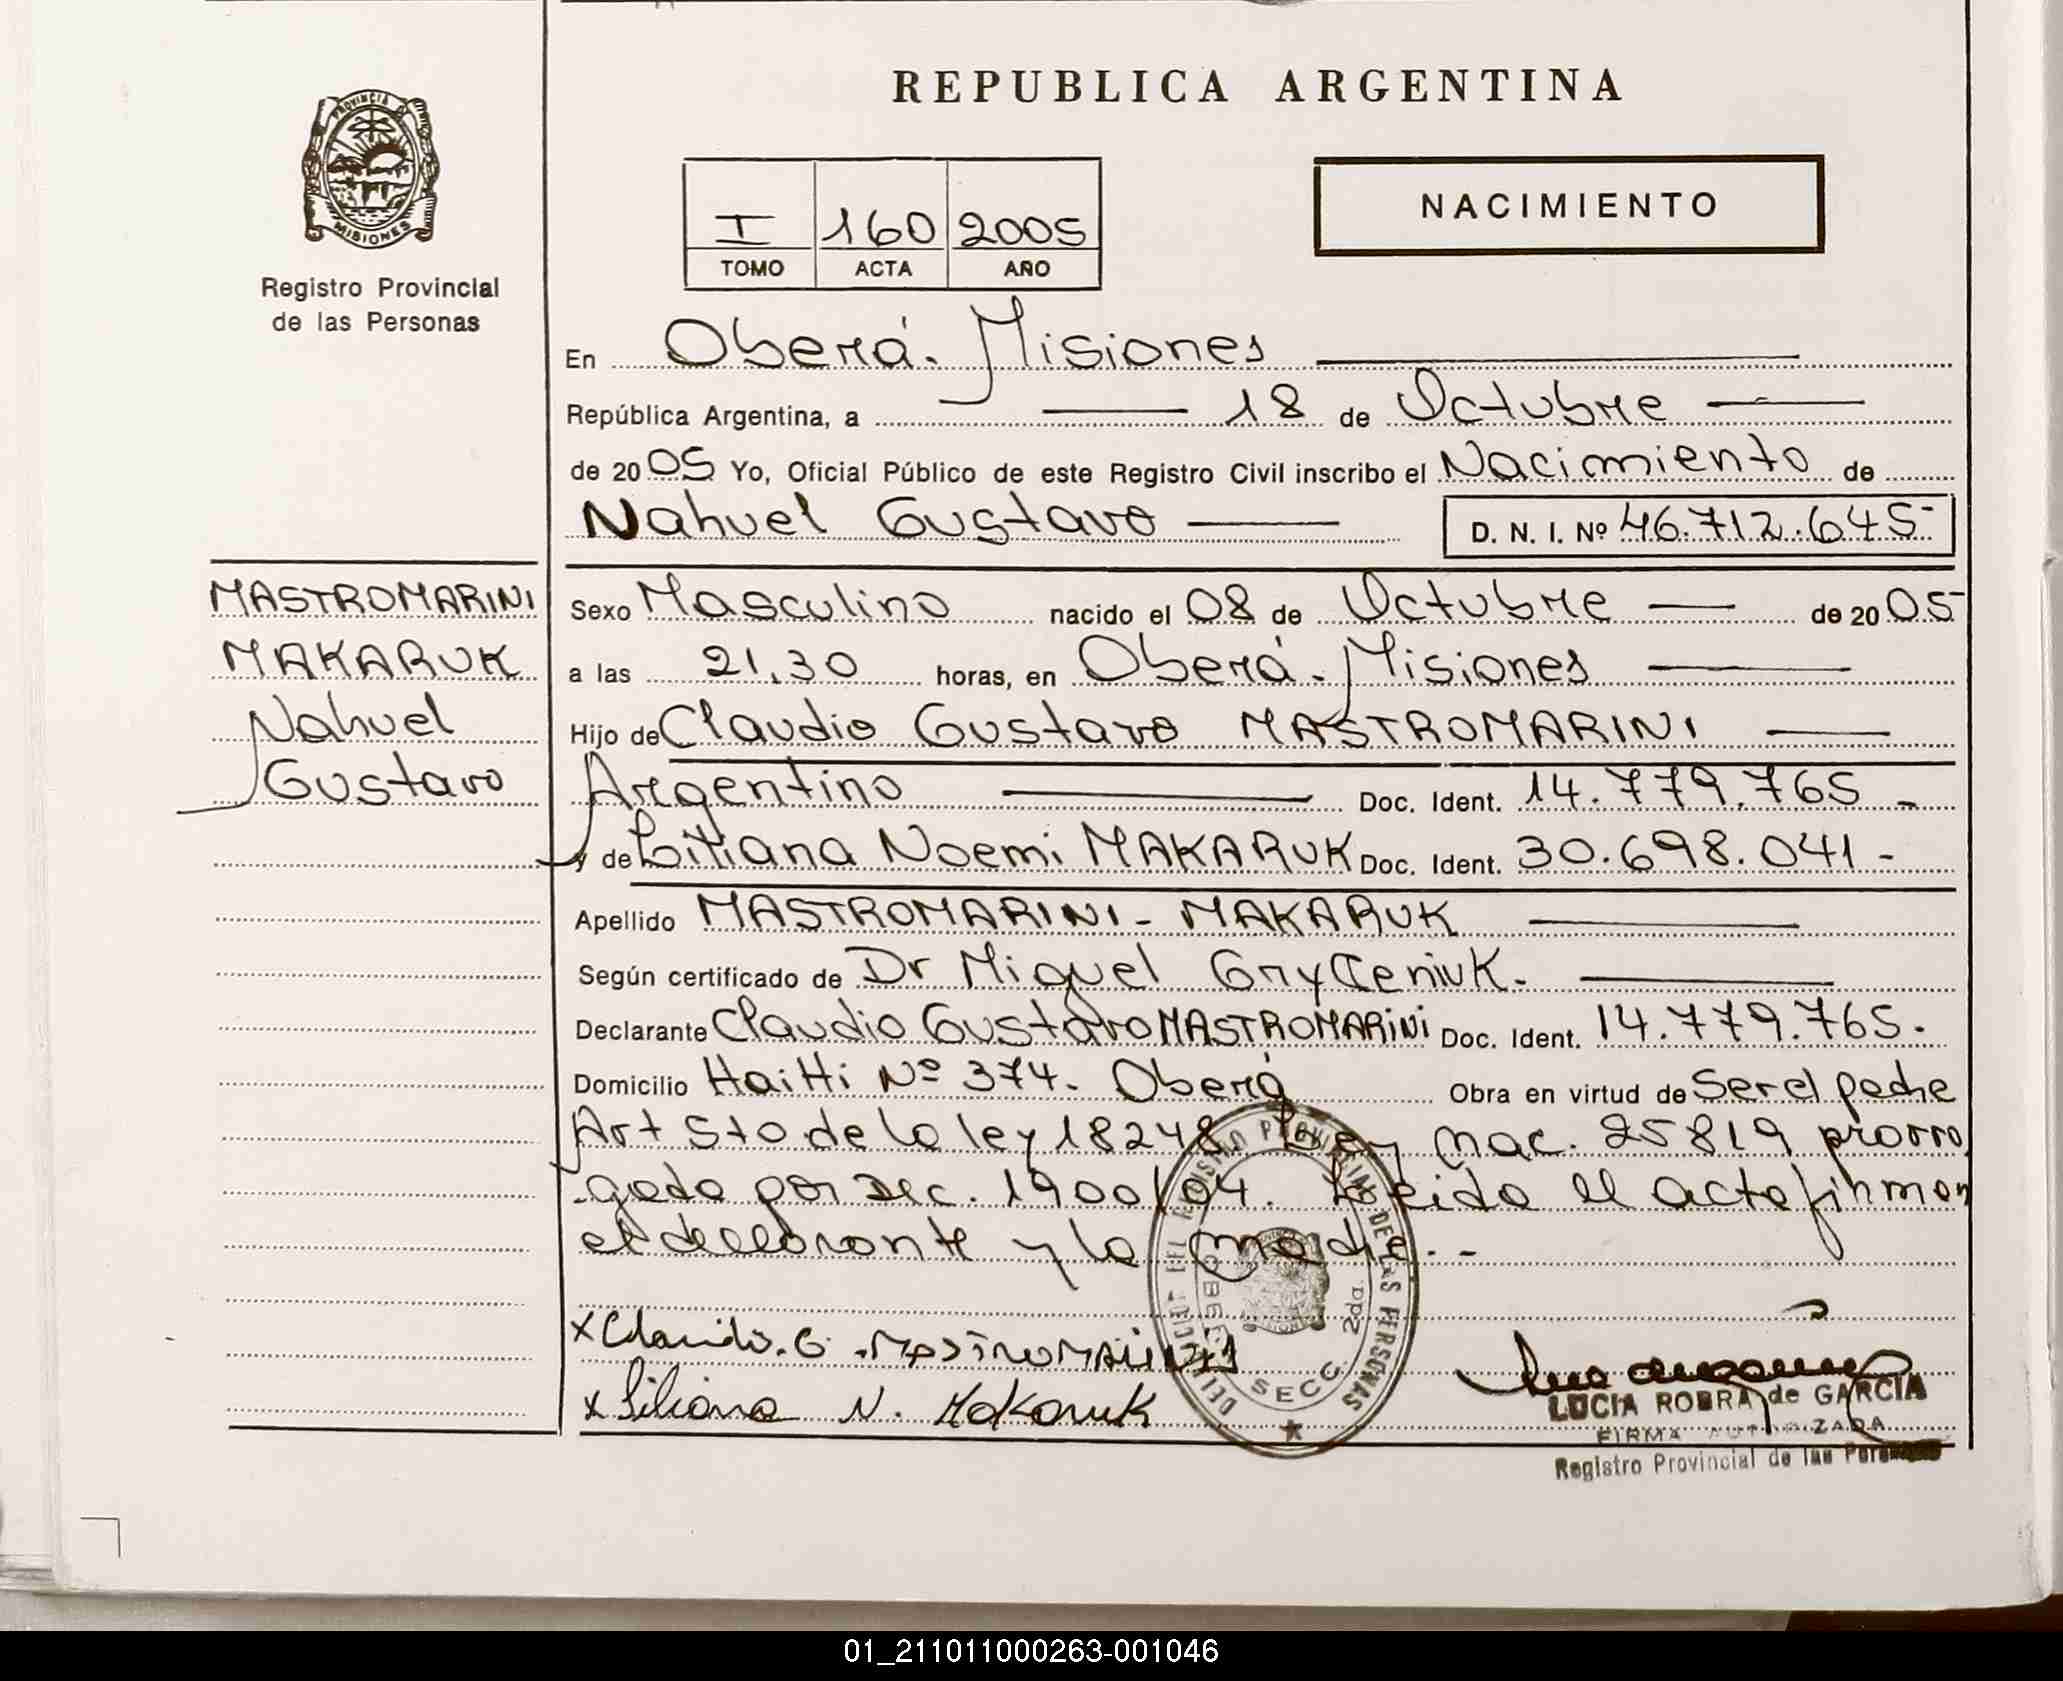 PROVINCIA DE
MISIONES
Registro Provincial
de las Personas
REPUBLICA ARGENTINA
I 160 2005
TOMO ACTA AÑO
NACIMIENTO
En Oberá. Misiones
República Argentina, a 18 de Octubre
de 2005 Yo, Oficial Público de este Registro Civil inscribo el Nacimiento de
Nahuel Gustavo D. N. I. Nº 46.712.645-
MASTROMARINI
MAKARUK
Nahuel
Gustavo
Sexo Masculino nacido el 08 de Octubre de 2005
a las 21,30 horas, en Oberá. Misiones
Hijo de Claudio Gustavo MASTROMARINI
Argentino Doc. Ident. 14.779.765 -
y de Liliana Noemi MAKARUK Doc. Ident. 30.698.041 -
Apellido MASTROMARINI - MAKARUK
Según certificado de Dr Miguel Gryceniuk.
Declarante Claudio Gustavo MASTROMARINI Doc. Ident. 14.779.765.
Domicilio Haitti Nº 374. Oberá Obra en virtud de Ser el padre
Art 5to de la ley 18248 Ley Nac. 25819 prorro
gada por Dec. 1900/04. Leida el acta firman
el declarante y la madre. -
x Claudio. G. MASTROMARINI
x Liliana N. Makaruk
DELEGACION DEL REGISTRO PROVINCIAL DE LAS PERSONAS
SECC. 2da.
LUCIA ROBRA de GARCIA
FIRMA AUTORIZADA
Registro Provincial de las Personas
01_211011000263-001046